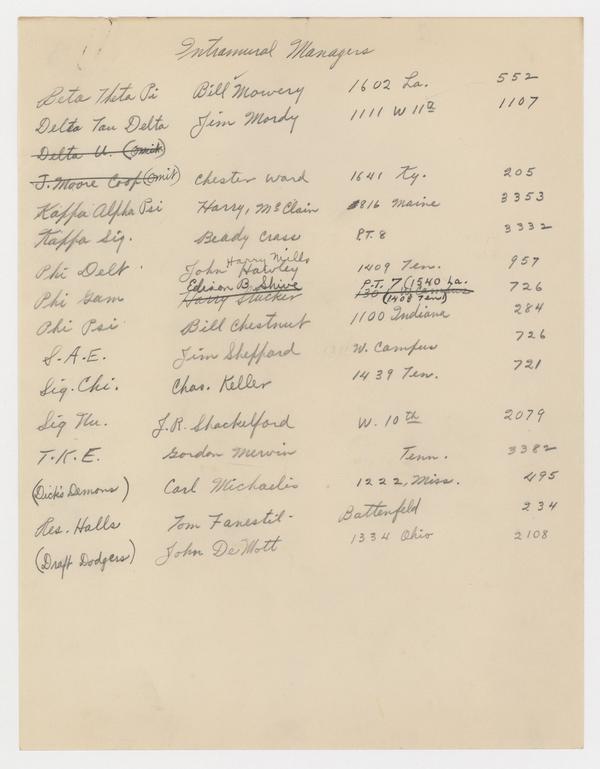 Intramural Managers
Beta Theta Pi Bill Mowery 1602 La. 552
Delta Tau Delta Jim Mordy 1111 W 11th 1107
Delta U. (omit)
J. Moore Coop (omit) Chester Ward 1641 Ky. 205
Kappa Alpha Psi Harry, McClain 816 Maine 3353
Kappa Sig. Beady Crass P.T. 8 3332
Harry Mills
Phi Delt John Hawley 1409 Ten. 957
Edison B. Shive P.T. 7 (1540 La.
Phi Gam Harry Stucker 726
(1408 Ten)
Phi Psi Bill Chestnut 1100 Indiana 284
S.A.E. Jim Sheppard W. Campus 726
Sig. Chi. Chas. Keller 1439 Ten. 721
Sig Nu. J.R. Shackelford W. 10th 2079
T.K.E. Gordon Mervin Tenn. 3382
(Dick's Demons) Carl Michaelis 1222, Miss. 495
Res. Halls Tom Fanestil - Battenfeld 234
(Draft Dodgers) John DeMott 1334 Ohio 2108